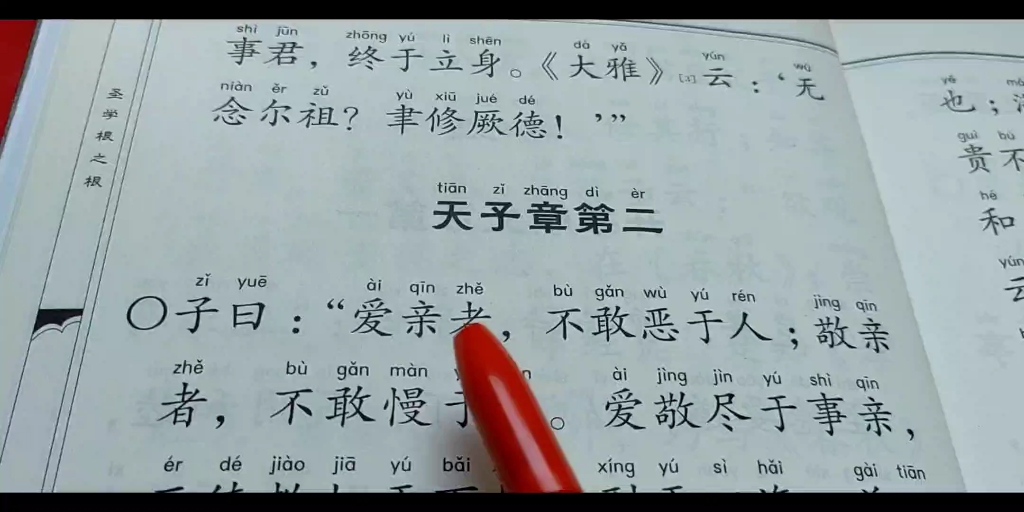 圣学根之根
shì jūn zhōng yú lì shēn dà yǎ yún wú
事君，终于立身。《大雅》云：‘无
niàn ěr zǔ yù xiū jué dé
念尔祖？聿修厥德！’”
tiān zǐ zhāng dì èr
天子章第二
zǐ yuē ài qīn zhě bù gǎn wù yú rén jìng qīn
〇子曰：“爱亲者，不敢恶于人；敬亲
zhě bù gǎn màn ài jìng jìn yú shì qīn
者，不敢慢于。爱敬尽于事亲，
ér dé jiào jiā yú bǎi xíng yú sì hǎi gài tiān
yě
也；
guì bù
贵不
hé
和
yún
云